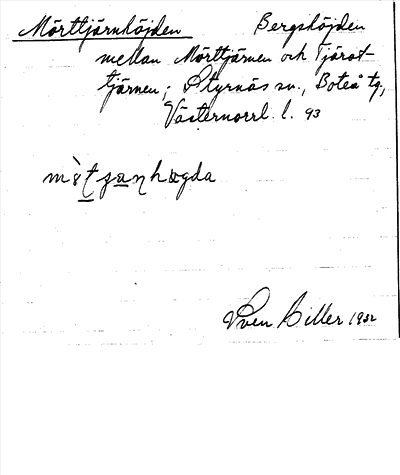 Mörttjärnhöjden Bergshöjden
mellan Mörttjärnen och Tjärot-
tjärnen; Styrnäs sn., Boteå tg,
Västernorrl. l. 93
Sven Hiller 1932